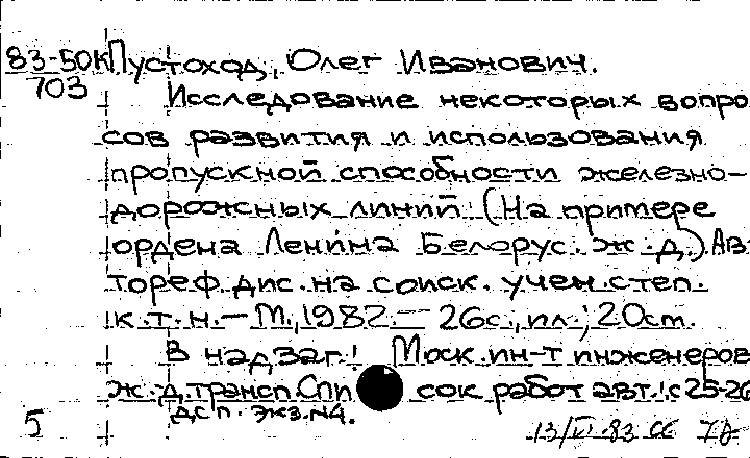 83-50к Пустоход, Олег Иванович.
703
Исследование некоторых вопро
сов развития и использования
пропускной способности железно-
дорожных линий: (На примере
ордена Ленина Белорус. ж.д.) Ав
тореф. дис. на соиск. учен. степ.
к.т.н. - М., 1982. - 26с., ил.; 20см.
В надзаг.: Моск. ин-т инженеров
ж.-д. трансп. Спи сок работ авт.: с 25-26
ДСП. экз. №4.
5
13/VI-83